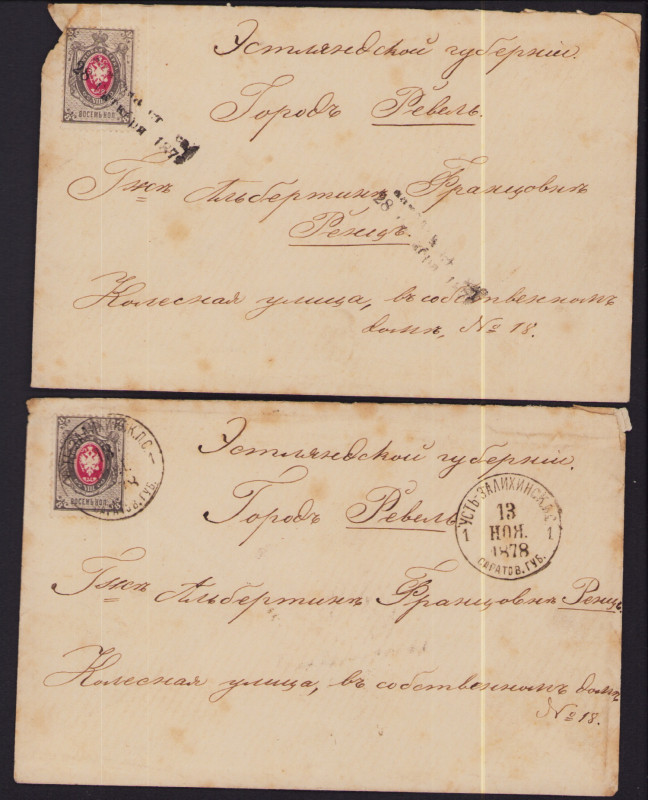 Эстляндской губернiи.
Городъ Ревель.
Гжѣ Альбертинѣ Францовнѣ
Ренцъ.
Колесная улица, въ собственномъ
домѣ, № 18.
ВОСЕМЬ КОП.
187
28
187
Эстляндской губернiи.
Городъ Ревель
Гжѣ Альбертинѣ Францовнѣ Ренцъ.
Колесная улица, въ собственномъ домѣ
№ 18.
ВОСЕМЬ КОП.
УСТЬ-ЗАЛИХИНСК.П.С
1 13 1
НОЯ.
1878
САРАТОВ. ГУБ.